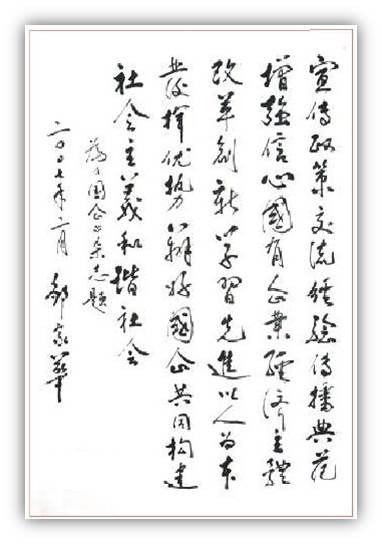 宣传政策交流经验传播典范
增强信心國有企業經济主體
改革创新学習先進以人为本
发挥优势办好國企共同构建
社会主义和谐社会
为国企杂志题
二〇〇七年二月 邹家华